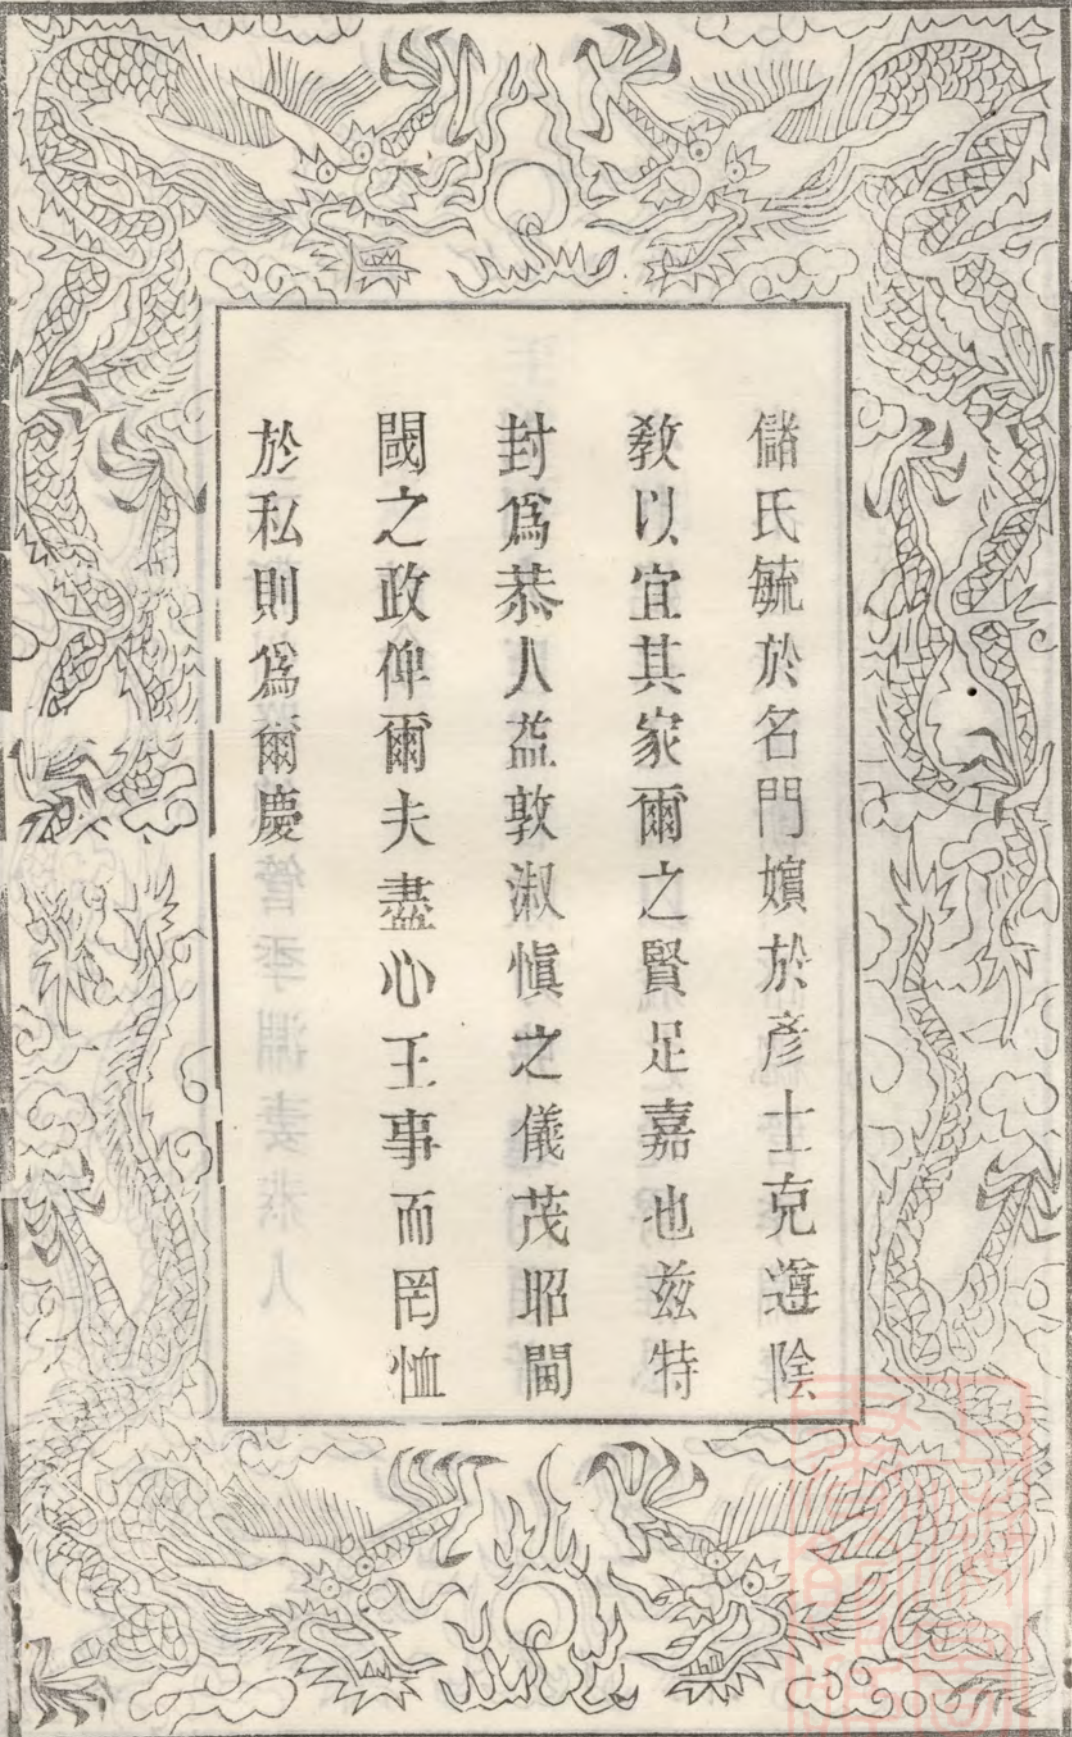 儲氏毓於名門嬪於彥士克遵陰
敎以宜其家爾之賢足嘉也玆特
封爲恭人益敦淑愼之儀茂昭閫
閾之政俾爾夫盡心王事而罔恤
於私則爲爾慶